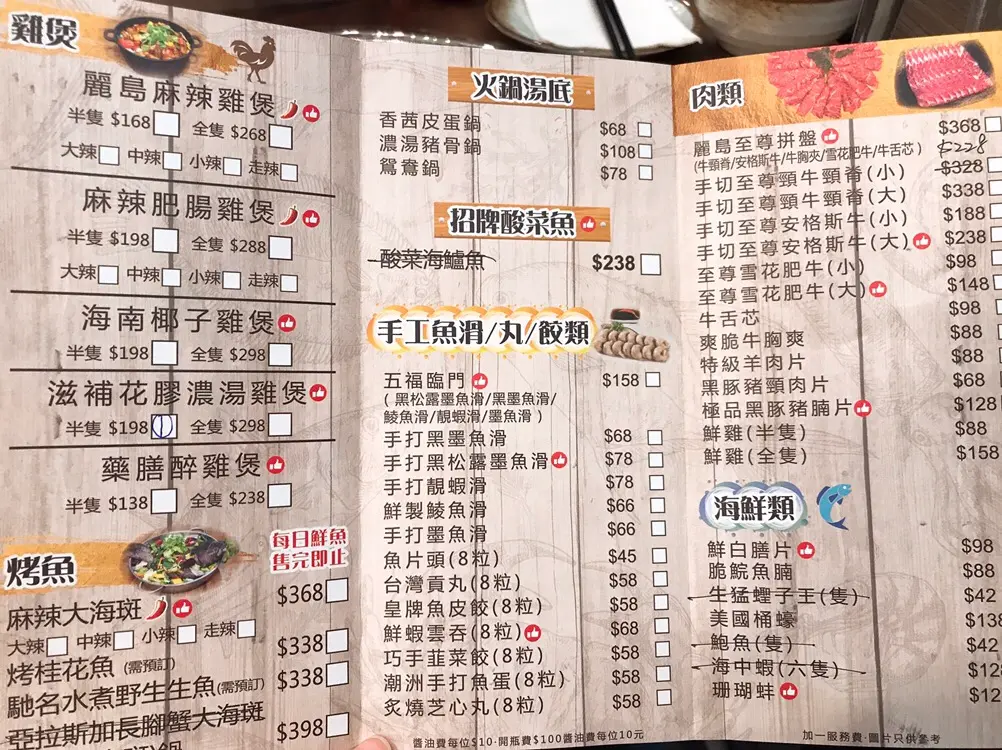 雞煲
麗島麻辣雞煲
半隻 $168 全隻 $268
大辣 中辣 小辣 走辣
麻辣肥腸雞煲
半隻 $198 全隻 $288
大辣 中辣 小辣 走辣
海南椰子雞煲
半隻 $198 全隻 $298
滋補花膠濃湯雞煲
半隻 $198 全隻 $298
藥膳醉雞煲
半隻 $138 全隻 $238
烤魚
每日鮮魚
售完即止
麻辣大海斑 $368
大辣 中辣 小辣 走辣
烤桂花魚 (需預訂) $338
馳名水煮野生生魚(需預訂) $338
亞拉斯加長腳蟹大海斑 $398
火鍋湯底
香茜皮蛋鍋 $68
濃湯豬骨鍋 $108
鴛鴦鍋 $78
招牌酸菜魚
酸菜海鱸魚 $238
手工魚滑/丸/餃類
五福臨門 $158
(黑松露墨魚滑/黑墨魚滑/
鯪魚滑/靚蝦滑/墨魚滑)
手打黑墨魚滑 $68
手打黑松露墨魚滑 $78
手打靚蝦滑 $78
鮮製鯪魚滑 $66
手打墨魚滑 $66
魚片頭(8粒) $45
台灣貢丸(8粒) $58
皇牌魚皮餃(8粒) $58
鮮蝦雲吞(8粒) $68
巧手韮菜餃(8粒) $58
潮洲手打魚蛋(8粒) $58
炙燒芝心丸(8粒) $58
醬油費每位$10·開瓶費$100醬油費每位10元
肉類
麗島至尊拼盤 $368
(牛頸脊/安格斯牛/牛胸夾/雪花肥牛/牛舌芯) $228
手切至尊頸牛頸脊(小) $328
手切至尊頸牛頸脊(大) $338
手切至尊安格斯牛(小) $188
手切至尊安格斯牛(大) $238
至尊雪花肥牛(小) $98
至尊雪花肥牛(大) $148
牛舌芯 $98
爽脆牛胸爽 $88
特級羊肉片 $88
黑豚豬頸肉片 $68
極品黑豚豬腩片 $128
鮮雞(半隻) $88
鮮雞(全隻) $158
海鮮類
鮮白膳片 $98
脆鯇魚腩 $88
生猛蟶子王(隻) $42
美國桶蠔 $138
鮑魚(隻) $42
海中蝦(六隻)
珊瑚蚌
加一服務費·圖片只供參考